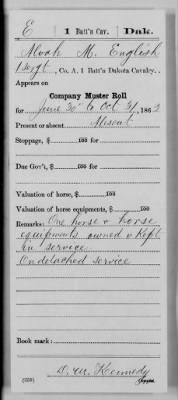 E | 1 Batt'n Cav. | Dak.
Alvah M. English
1 Sergt, Co. A, 1 Batt'n Dakota Cavalry.
Appears on
Company Muster Roll
for June 30" to Oct 31, 1862
Present or absent Absent
Stoppage, $ 100 for
Due Gov't, $ 100 for
Valuation of horse, $ 100
Valuation of horse equipments, $ 100
Remarks: One horse & horse
equipments owned & Kept
in service
On detached service
Book mark:
D. M. Kennedy
Copyist.